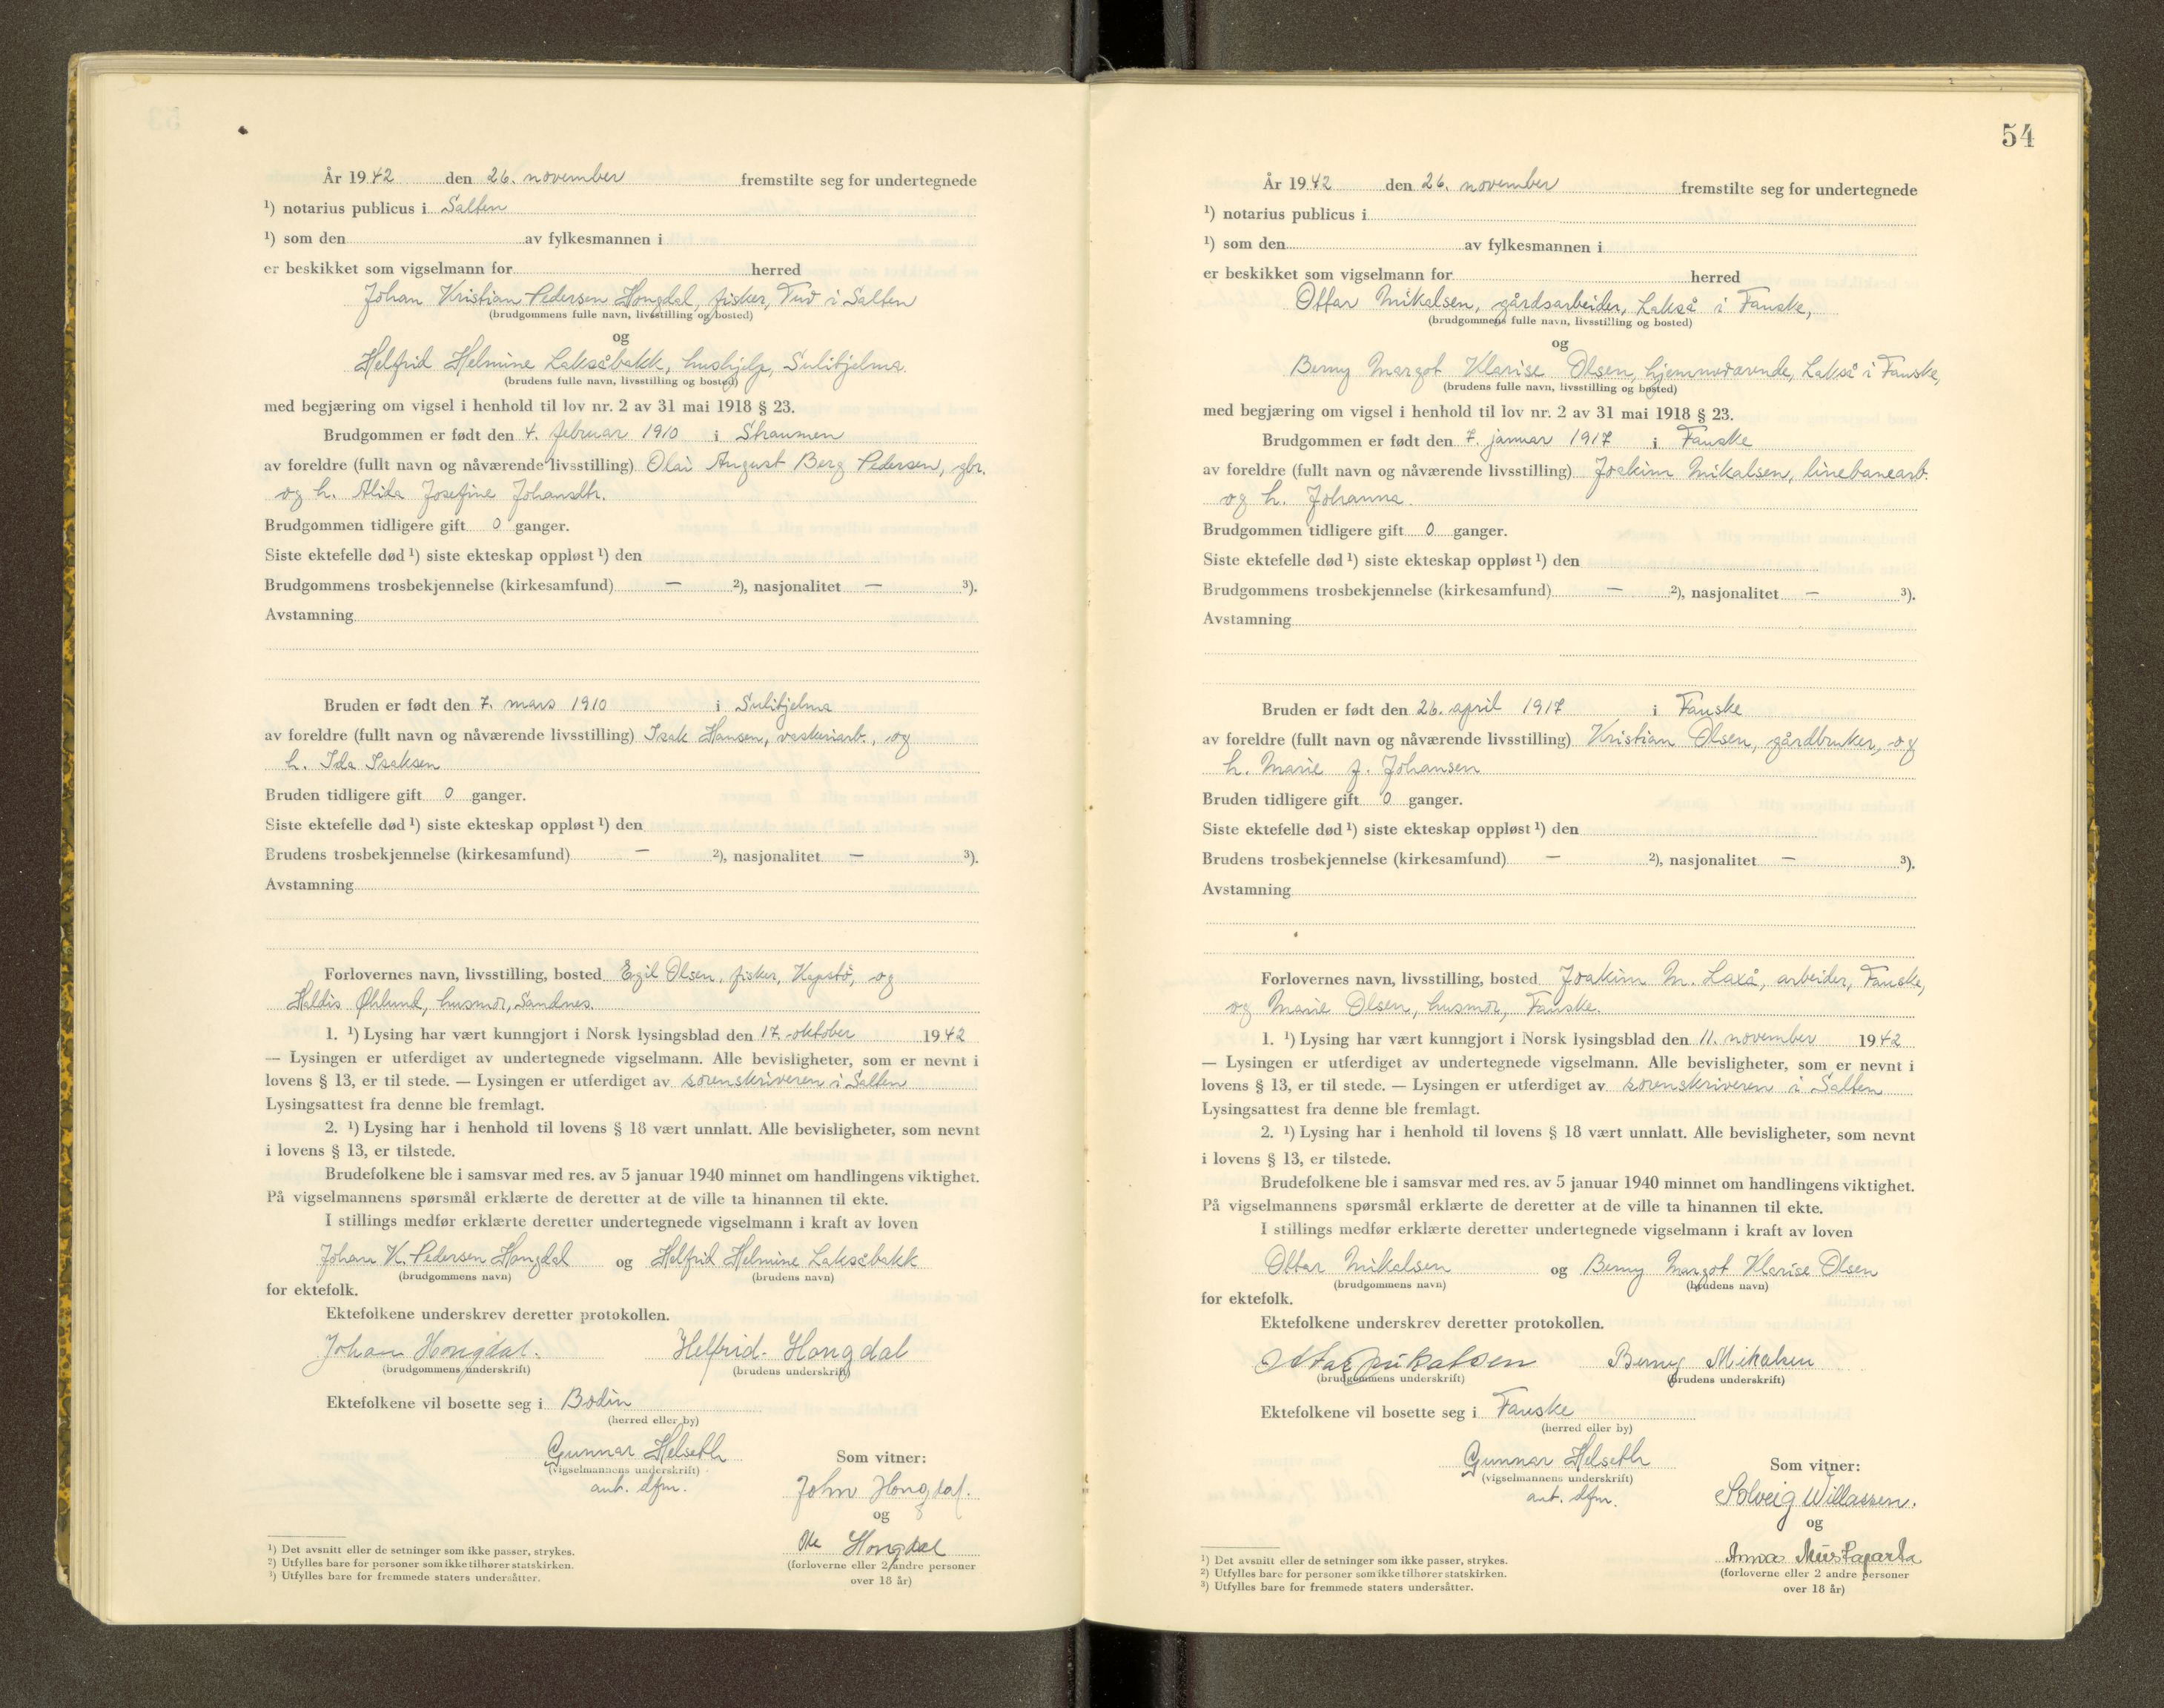 År 1942 den 26. november fremstilte seg for undertegnede
¹) notarius publicus i Salten
¹) som den av fylkesmannen i
er beskikket som vigselmann for herred
Johan Kristian Pedersen Hongdal, fisker, Tuv i Salten
(brudgommens fulle navn, livsstilling og bosted)
og
Helfrid Helmine Laksåbakk, hushjelp, Sulitjelma
(brudens fulle navn, livsstilling og bosted)
med begjæring om vigsel i henhold til lov nr. 2 av 31 mai 1918 § 23.
Brudgommen er født den 4. februar 1910 i Straumen
av foreldre (fullt navn og nåværende livsstilling) Olai August Berg Pedersen, gbr.
og h. Alida Josefine Johansdtr.
Brudgommen tidligere gift 0 ganger.
Siste ektefelle død ¹) siste ekteskap oppløst ¹) den
Brudgommens trosbekjennelse (kirkesamfund) — ²), nasjonalitet — ³).
Avstamning
Bruden er født den 7. mars 1910 i Sulitjelma
av foreldre (fullt navn og nåværende livsstilling) Isak Hansen, vaskeriarb., og
h. Ida Isaksen
Bruden tidligere gift 0 ganger.
Siste ektefelle død ¹) siste ekteskap oppløst ¹) den
Brudens trosbekjennelse (kirkesamfund) — ²), nasjonalitet — ³).
Avstamning
Forlovernes navn, livsstilling, bosted Egil Olsen, fisker, Kapstø, og
Haldis Øhlund, husmor, Sandnes.
1. ¹) Lysing har vært kunngjort i Norsk lysingsblad den 17. oktober 1942
— Lysingen er utferdiget av undertegnede vigselmann. Alle bevisligheter, som er nevnt i
lovens § 13, er til stede. — Lysingen er utferdiget av sorenskriveren i Salten
Lysingsattest fra denne ble fremlagt.
2. ¹) Lysing har i henhold til lovens § 18 vært unnlatt. Alle bevisligheter, som nevnt
i lovens § 13, er tilstede.
Brudefolkene ble i samsvar med res. av 5 januar 1940 minnet om handlingens viktighet.
På vigselmannens spørsmål erklærte de deretter at de ville ta hinannen til ekte.
I stillings medfør erklærte deretter undertegnede vigselmann i kraft av loven
Johan K. Pedersen Hongdal og Helfrid Helmine Laksåbakk
(brudgommens navn) (brudens navn)
for ektefolk.
Ektefolkene underskrev deretter protokollen.
Johan Hongdal. Helfrid Hongdal
(brudgommens underskrift) (brudens underskrift)
Ektefolkene vil bosette seg i Bodin
(herred eller by)
Gunnar Helseth
(vigselmannens underskrift)
aut. dfm.
Som vitner:
John Hongdal.
og
Hongdal
(forloverne eller 2 andre personer
over 18 år)
¹) Det avsnitt eller de setninger som ikke passer, strykes.
²) Utfylles bare for personer som ikke tilhører statskirken.
³) Utfylles bare for fremmede staters undersåtter.
54
År 1942 den 26. november fremstilte seg for undertegnede
¹) notarius publicus i
¹) som den av fylkesmannen i
er beskikket som vigselmann for herred
Ottar Mikalsen, gårdsarbeider, Lakså i Fauske,
(brudgommens fulle navn, livsstilling og bosted)
og
Berny Margot Klarise Olsen, hjemmeværende, Lakså i Fauske,
(brudens fulle navn, livsstilling og bosted)
med begjæring om vigsel i henhold til lov nr. 2 av 31 mai 1918 § 23.
Brudgommen er født den 7. januar 1917 i Fauske
av foreldre (fullt navn og nåværende livsstilling) Joakim Mikalsen, linebanearb.
og h. Johanna.
Brudgommen tidligere gift 0 ganger.
Siste ektefelle død ¹) siste ekteskap oppløst ¹) den
Brudgommens trosbekjennelse (kirkesamfund) — ²), nasjonalitet — ³).
Avstamning
Bruden er født den 26. april 1917 i Fauske
av foreldre (fullt navn og nåværende livsstilling) Kristian Olsen, gårdbruker, og
h. Marie f. Johansen
Bruden tidligere gift 0 ganger.
Siste ektefelle død ¹) siste ekteskap oppløst ¹) den
Brudens trosbekjennelse (kirkesamfund) — ²), nasjonalitet — ³).
Avstamning
Forlovernes navn, livsstilling, bosted Joakim M. Laxå, arbeider, Fauske,
og Marie Olsen, husmor, Fauske.
1. ¹) Lysing har vært kunngjort i Norsk lysingsblad den 11. november 1942
— Lysingen er utferdiget av undertegnede vigselmann. Alle bevisligheter, som er nevnt i
lovens § 13, er til stede. — Lysingen er utferdiget av sorenskriveren i Salten
Lysingsattest fra denne ble fremlagt.
2. ¹) Lysing har i henhold til lovens § 18 vært unnlatt. Alle bevisligheter, som nevnt
i lovens § 13, er tilstede.
Brudefolkene ble i samsvar med res. av 5 januar 1940 minnet om handlingens viktighet.
På vigselmannens spørsmål erklærte de deretter at de ville ta hinannen til ekte.
I stillings medfør erklærte deretter undertegnede vigselmann i kraft av loven
Ottar Mikalsen og Berny Margot Klarise Olsen
(brudgommens navn) (brudens navn)
for ektefolk.
Ektefolkene underskrev deretter protokollen.
Ottar Mikalsen Berny Mikalsen
(brudgommens underskrift) (brudens underskrift)
Ektefolkene vil bosette seg i Fauske
(herred eller by)
Gunnar Helseth
(vigselmannens underskrift)
aut. dfm.
Som vitner:
Solveig Willassen.
og
Anna Mustaparta
(forloverne eller 2 andre personer
over 18 år)
¹) Det avsnitt eller de setninger som ikke passer, strykes.
²) Utfylles bare for personer som ikke tilhører statskirken.
³) Utfylles bare for fremmede staters undersåtter.